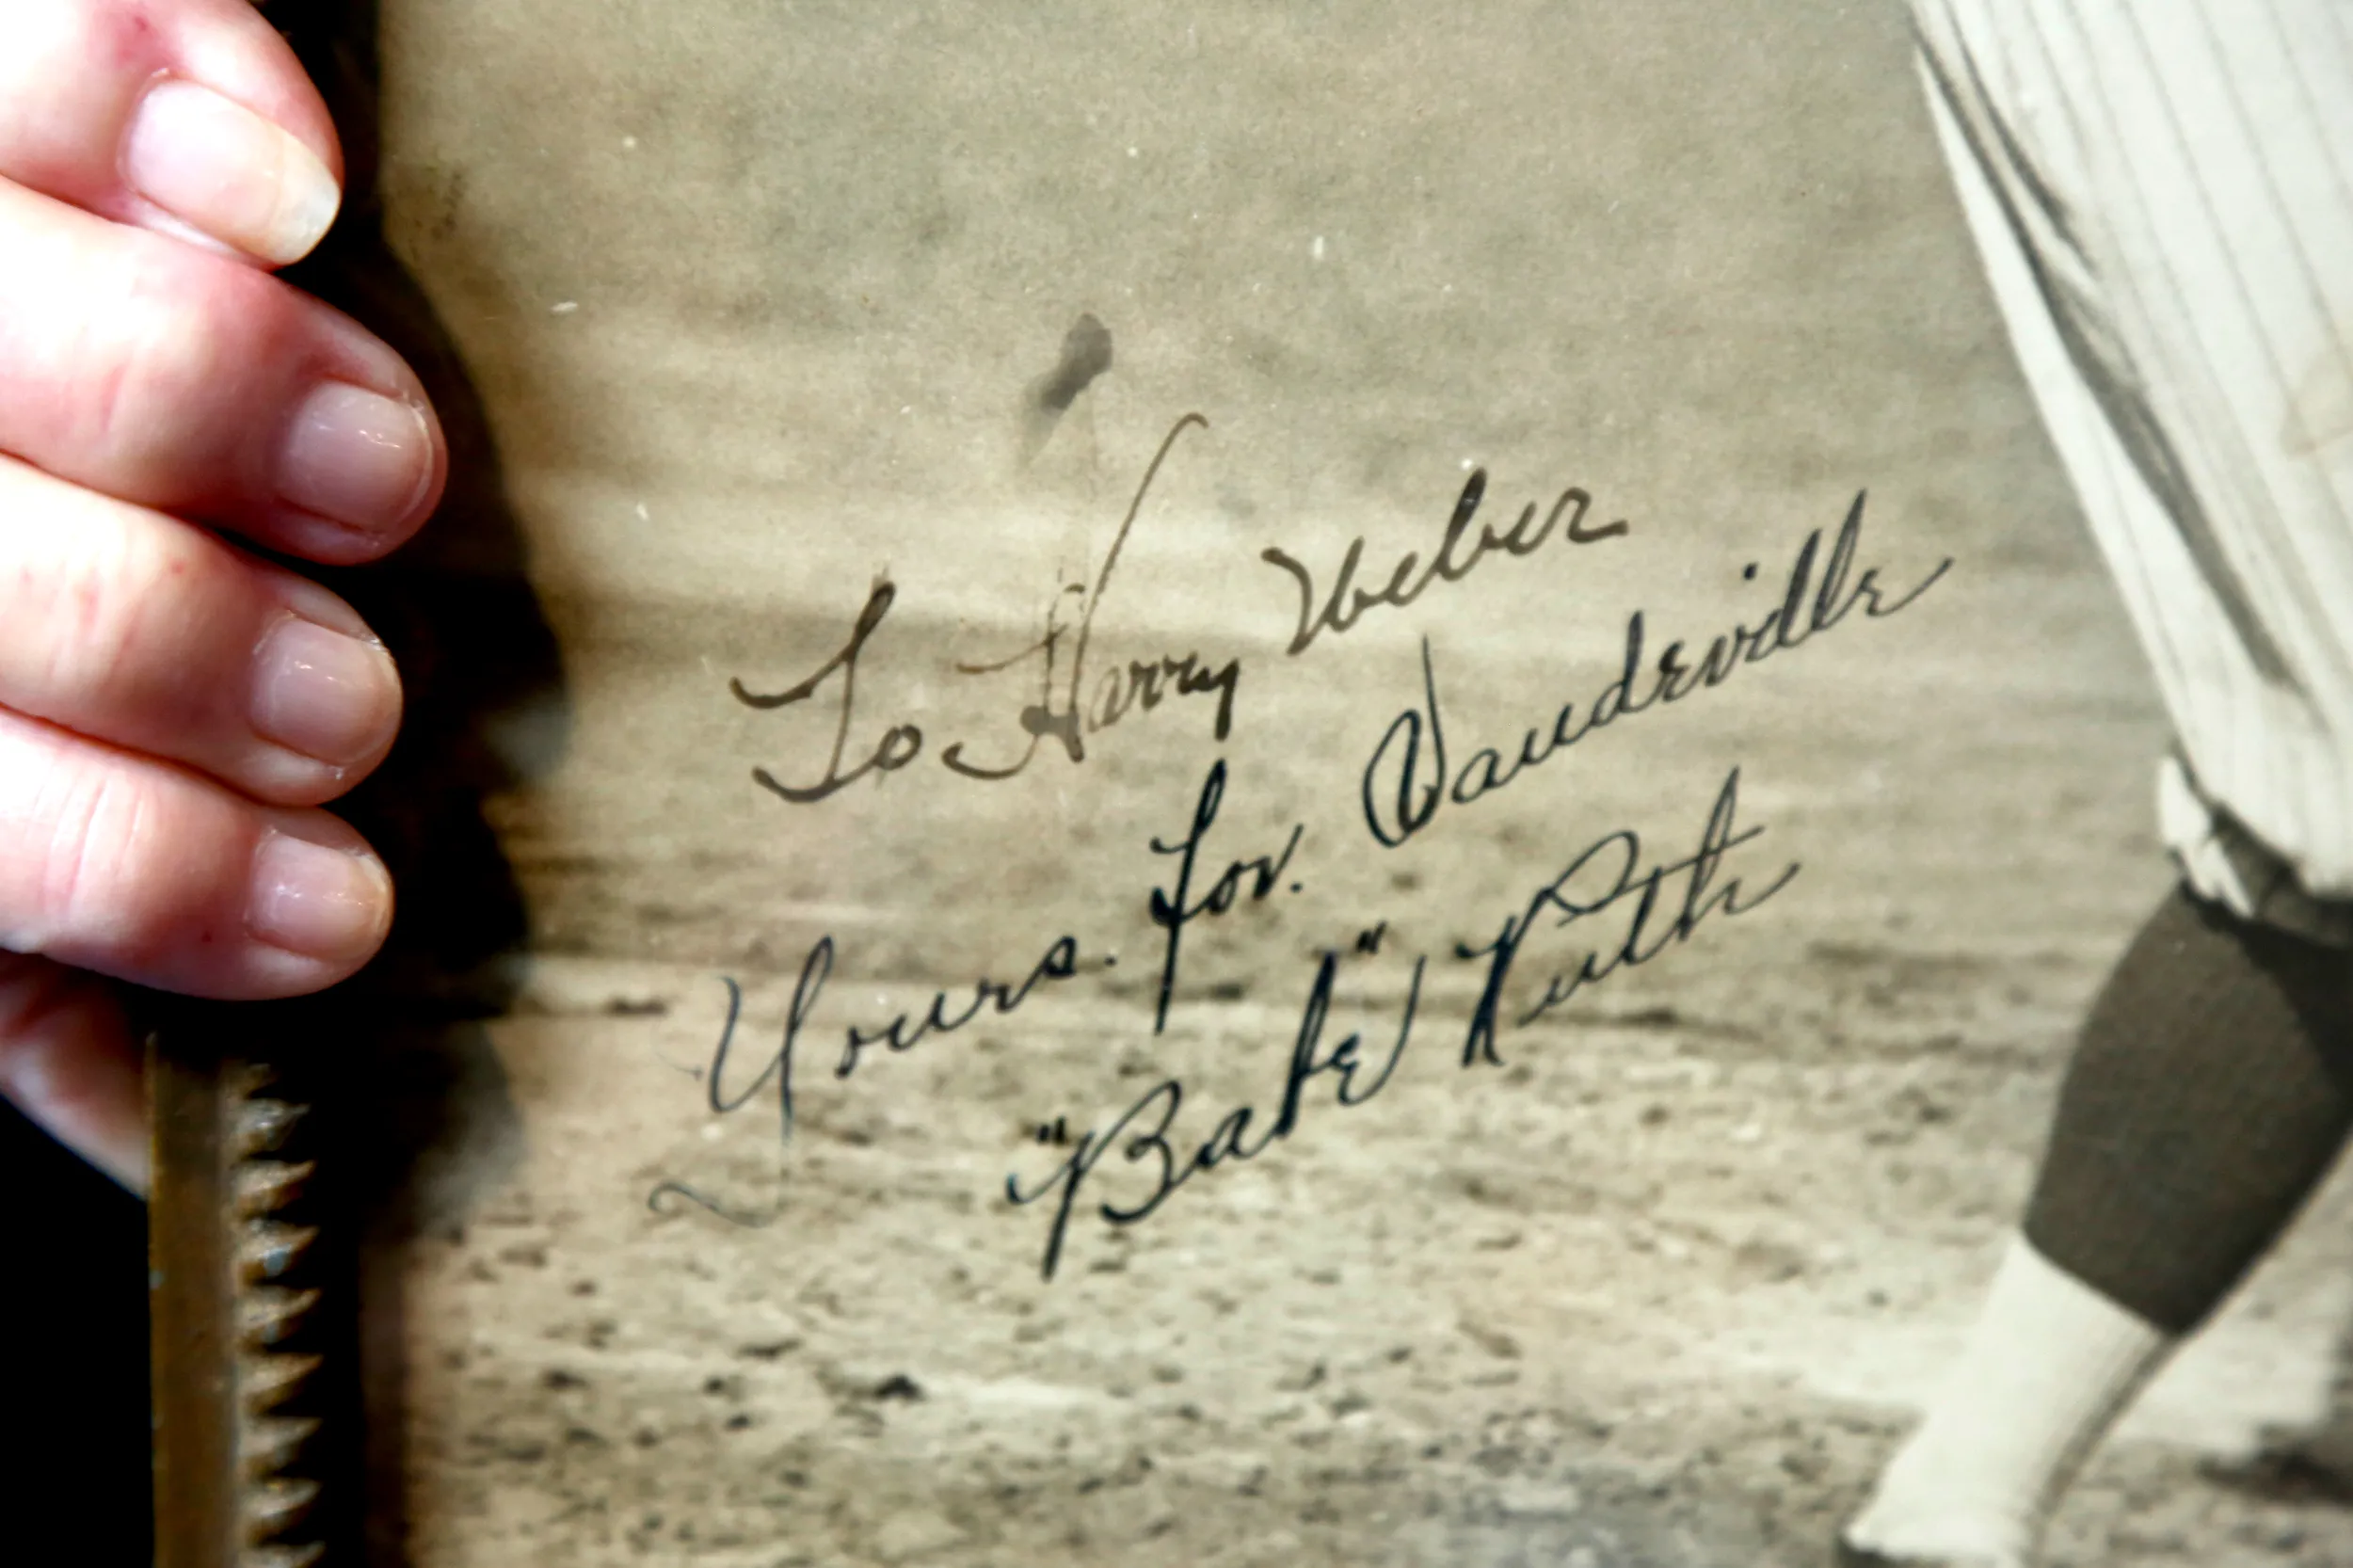 To Harry Weber
Yours. for. Vaudeville
"Babe" Ruth